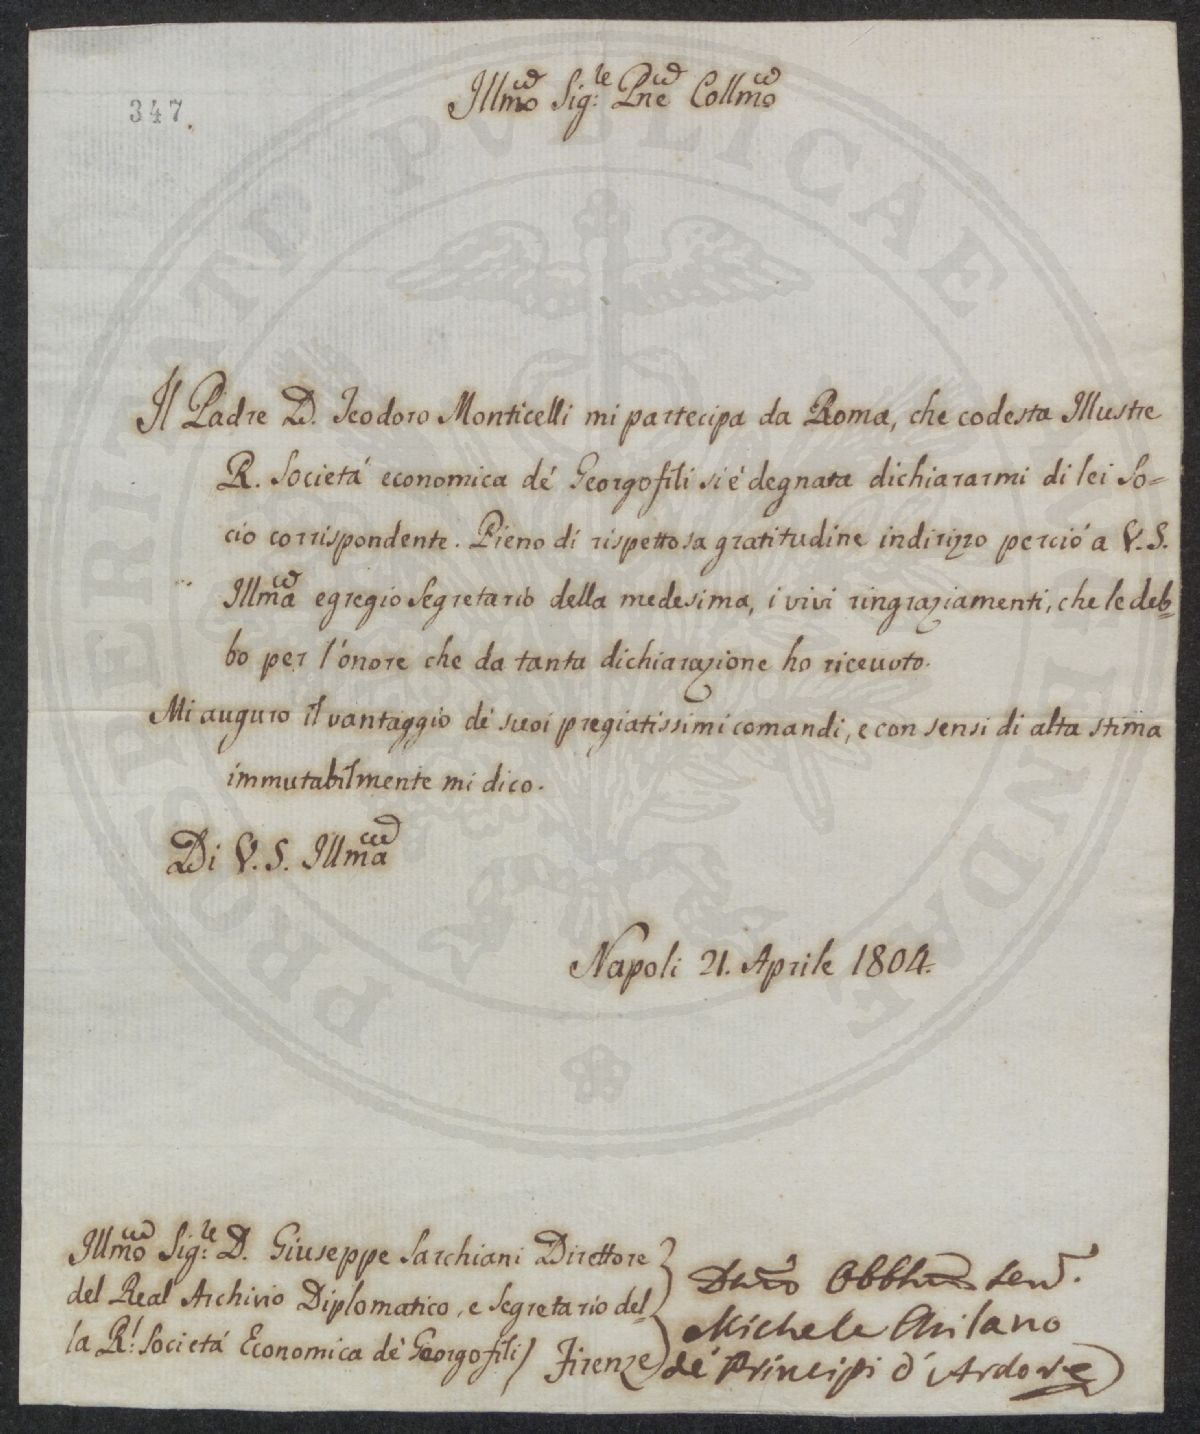 347.
Illmo Sig:le Pne Collmo
Il Padre D. Teodoro Monticelli mi partecipa da Roma, che codesta Illustre
R. Societá economica de' Georgofili si é degnata dichiararmi di lei So=
cio corrispondente. Pieno di rispettosa gratitudine indirizzo perció a V.S.
Illma egregio Segretario della medesima, i vivi ringraziamenti, che le deb=
bo per l'onore che da tanta dichiarazione ho ricevuto.
Mi auguro il vantaggio de' suoi pregiatissimi comandi, e con sensi di alta stima
immutabilmente mi dico.
Di V. S. Illma
Napoli 21. Aprile 1804.
Illmo Sig:le D. Giuseppe Sarchiani Direttore
del Real Archivio Diplomatico, e Segretario del=
la Rl. Societá Economica de' Georgofili / Firenze
Michele Milano
de' Principi d'Ardore
PROSPERITATI PUBLICAE AUGENDAE